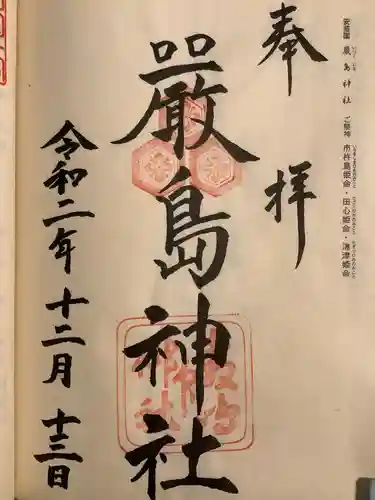 安芸國 厳島神社 ご祭神 市杵島姫命・田心姫命・湍津姫命
奉拝
嚴島神社
令和二年十二月十三日